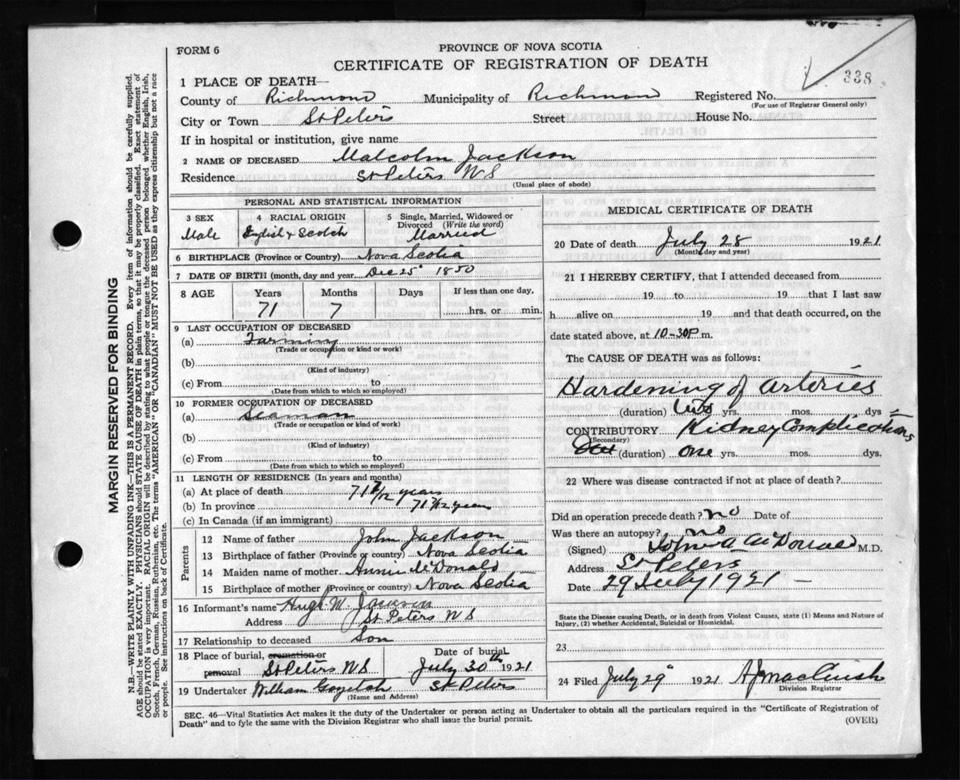 FORM 6
PROVINCE OF NOVA SCOTIA
CERTIFICATE OF REGISTRATION OF DEATH
338
1 PLACE OF DEATH—
County of Richmond Municipality of Richmond Registered No.
(For use of Registrar General only)
City or Town St Peters Street House No.
If in hospital or institution, give name
2 NAME OF DECEASED Malcolm Jackson
Residence St Peters NS
(Usual place of abode)
PERSONAL AND STATISTICAL INFORMATION
3 SEX 4 RACIAL ORIGIN 5 Single, Married, Widowed or Divorced (Write the word)
Male English & Scotch Married
6 BIRTHPLACE (Province or Country) Nova Scotia
7 DATE OF BIRTH (month, day and year) Dec 25 1850
8 AGE Years Months Days If less than one day,
71 7 hrs. or min.
9 LAST OCCUPATION OF DECEASED
(a) Farming
(Trade or occupation or kind or work)
(b)
(Kind of industry)
(c) From to
(Date from which to which so employed)
10 FORMER OCCUPATION OF DECEASED
(a) Seaman
(Trade or occupation or kind of work)
(b)
(Kind of industry)
(c) From to
(Date from which to which so employed)
11 LENGTH OF RESIDENCE (In years and months)
(a) At place of death 71 7/12 years
(b) In province 71 7/12 years
(c) In Canada (if an immigrant)
Parents
12 Name of father John Jackson
13 Birthplace of father (Province or country) Nova Scotia
14 Maiden name of mother Annie McDonald
15 Birthplace of mother (Province or country) Nova Scotia
16 Informant's name Hugh M.
Address St Peters NS
17 Relationship to deceased Son
18 Place of burial, cremation or removal St Peters NS
Date of burial July 30th 1921
19 Undertaker William St Peters
(Name and Address)
MEDICAL CERTIFICATE OF DEATH
20 Date of death July 28 1921
(Month, day and year)
21 I HEREBY CERTIFY, that I attended deceased from
19 to 19 that I last saw
h alive on 19 and that death occurred, on
the date stated above, at 10-30P m.
The CAUSE OF DEATH was as follows:
Hardening of arteries
(duration) two yrs. mos. dys
CONTRIBUTORY Kidney Complications
(Secondary)
(duration) one yrs. mos. dys.
22 Where was disease contracted if not at place of death?
Did an operation precede death? no Date of
Was there an autopsy? no
(Signed) John A McDonald M.D.
Address St Peters
Date 29 July 1921 —
State the Disease causing Death, or in death from Violent Causes, state (1) Means and Nature of
Injury, (2) whether Accidental, Suicidal or Homicidal.
23
24 Filed July 29 1921
Division Registrar
SEC. 46—Vital Statistics Act makes it the duty of the Undertaker or person acting as Undertaker to obtain all the particulars required in the "Certificate of Registration of
Death" and to fyle the same with the Division Registrar who shall issue the burial permit.
(OVER)
MARGIN RESERVED FOR BINDING
N.B.—WRITE PLAINLY WITH UNFADING INK—THIS IS A PERMANENT RECORD. Every item of information should be carefully supplied.
AGE should be stated EXACTLY. PHYSICIANS should STATE CAUSE OF DEATH in plain terms, so that it may be properly classified. Exact statement of
OCCUPATION is very important. RACIAL ORIGIN will be described by stating to what people or tongue the deceased person belonged whether English, Irish,
Scotch, French, German, Russian, Ruthenian, etc. The terms "AMERICAN" OR "CANADIAN" MUST NOT BE USED as they express citizenship but not a race
or people. See instructions on back of Certificate.